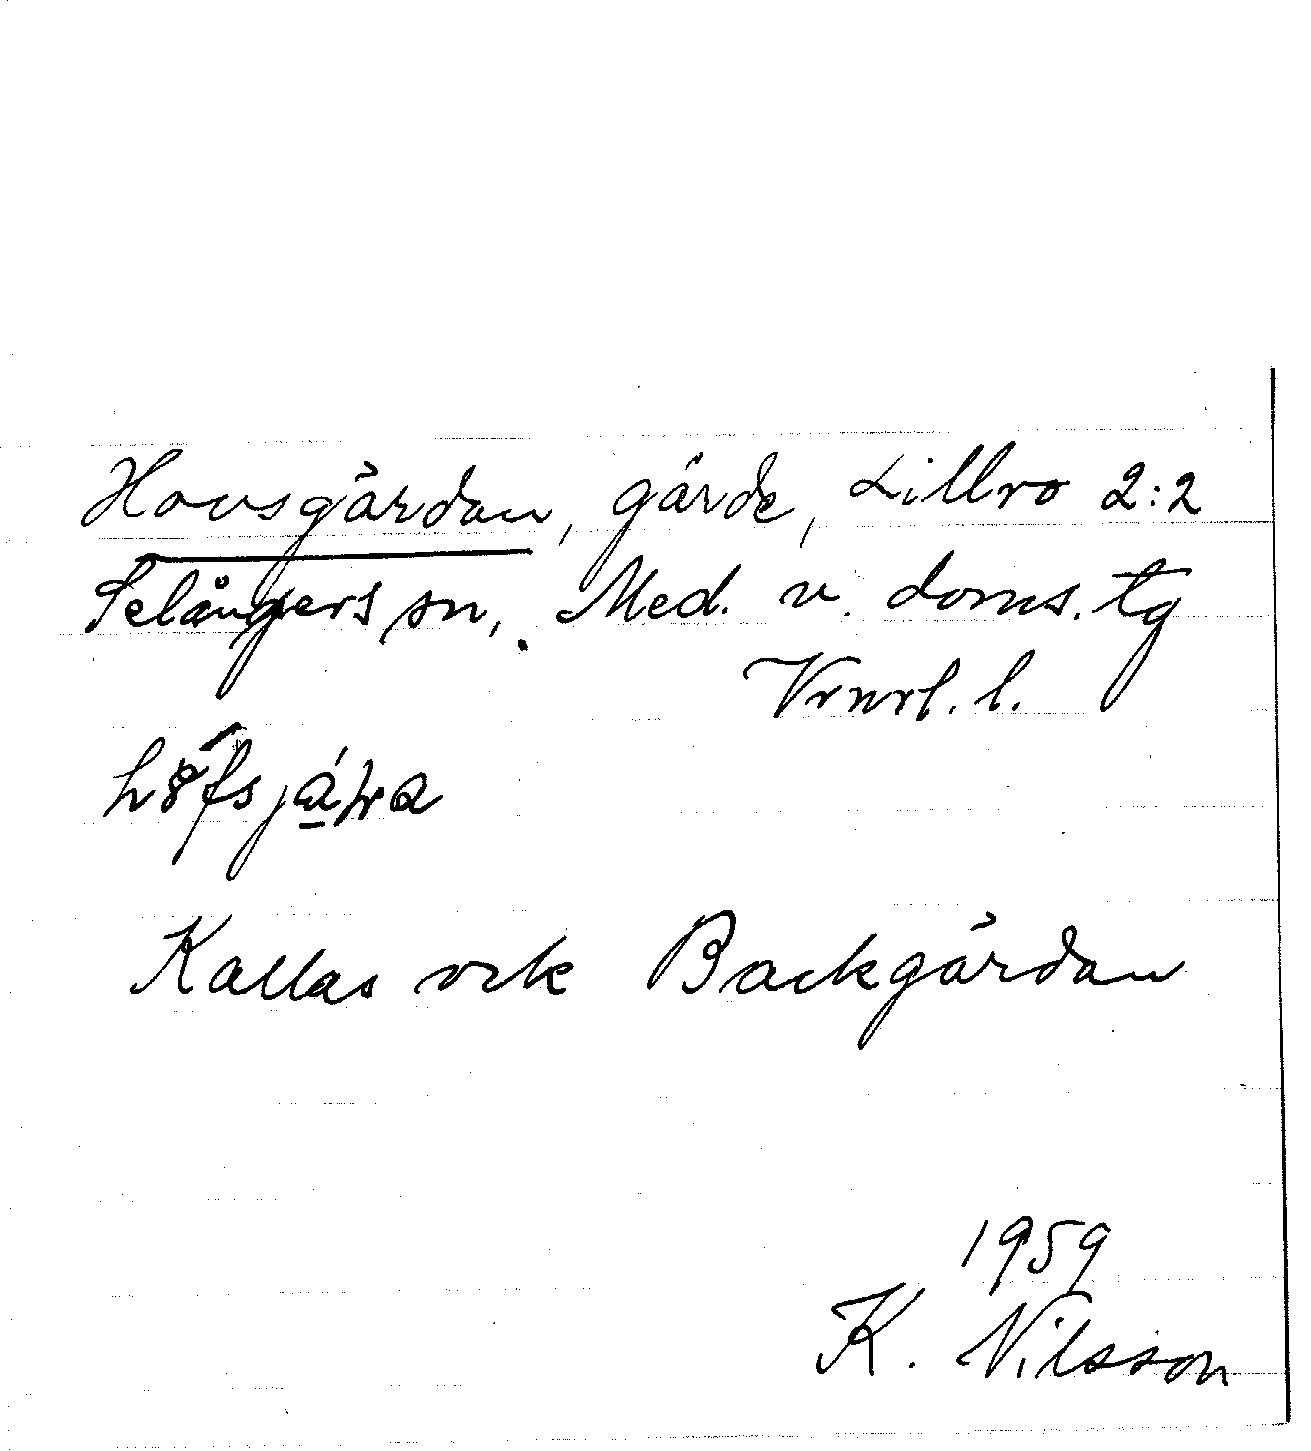 Hovsgårdan, gärde, Lillro 2:2
Selångers sn, Med. v. doms. tg
Vrnrl. l.
Kallas ock Backgårdan
1959
K. Nilsson